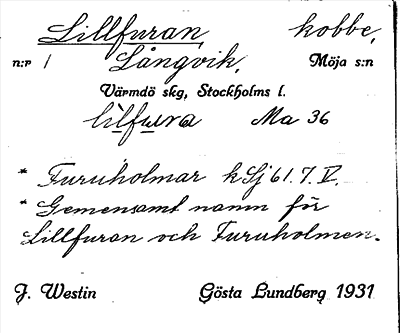 Lillfuran, kobbe,
n:r 1 Långvik, Möja s:n
Värmdö skg, Stockholms l.
lilfura Ma 36
* Furuholmar kSj 61.7.V.
* Gemensamt namn för
Lillfuran och Furuholmen.
J. Westin Gösta Lundberg 1931